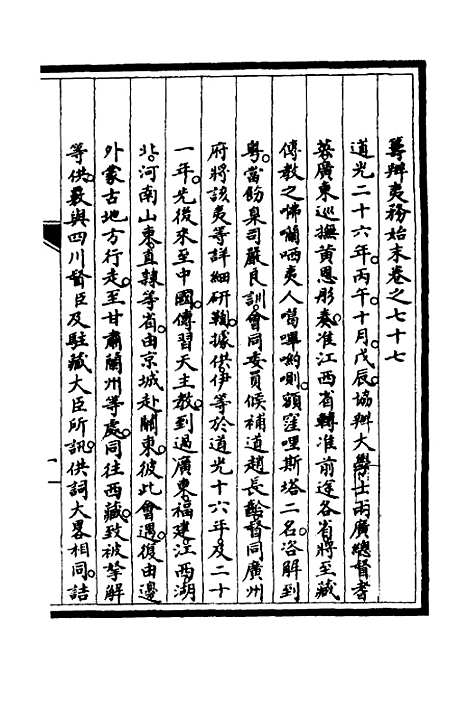 籌辦夷務始末卷之七十七
道光二十六年。丙午。十月。戊辰。協辦大學士兩廣總督耆
英廣東巡撫黃恩彤奏。准江西省轉准前途各省將至藏
傳教之咈囒哂夷人噶嗶喲唎。額窪哩斯塔二名。咨解到
粵。當飭臬司嚴良訓。會同委員候補道趙長齡。督同廣州
府將該夷等詳細研鞫。據供伊等於道光十六年及二十
一年。先後來至中國。傳習天主教。到過廣東。福建。江西。湖
北。河南。山東。直隸等省。由京城赴關東。彼此會遇。復由邊
外蒙古地方行走。至甘肅蘭州等處。同往西藏。致被拏解
等供。覈與四川督臣及駐藏大臣所訊。供詞大畧相同。詰